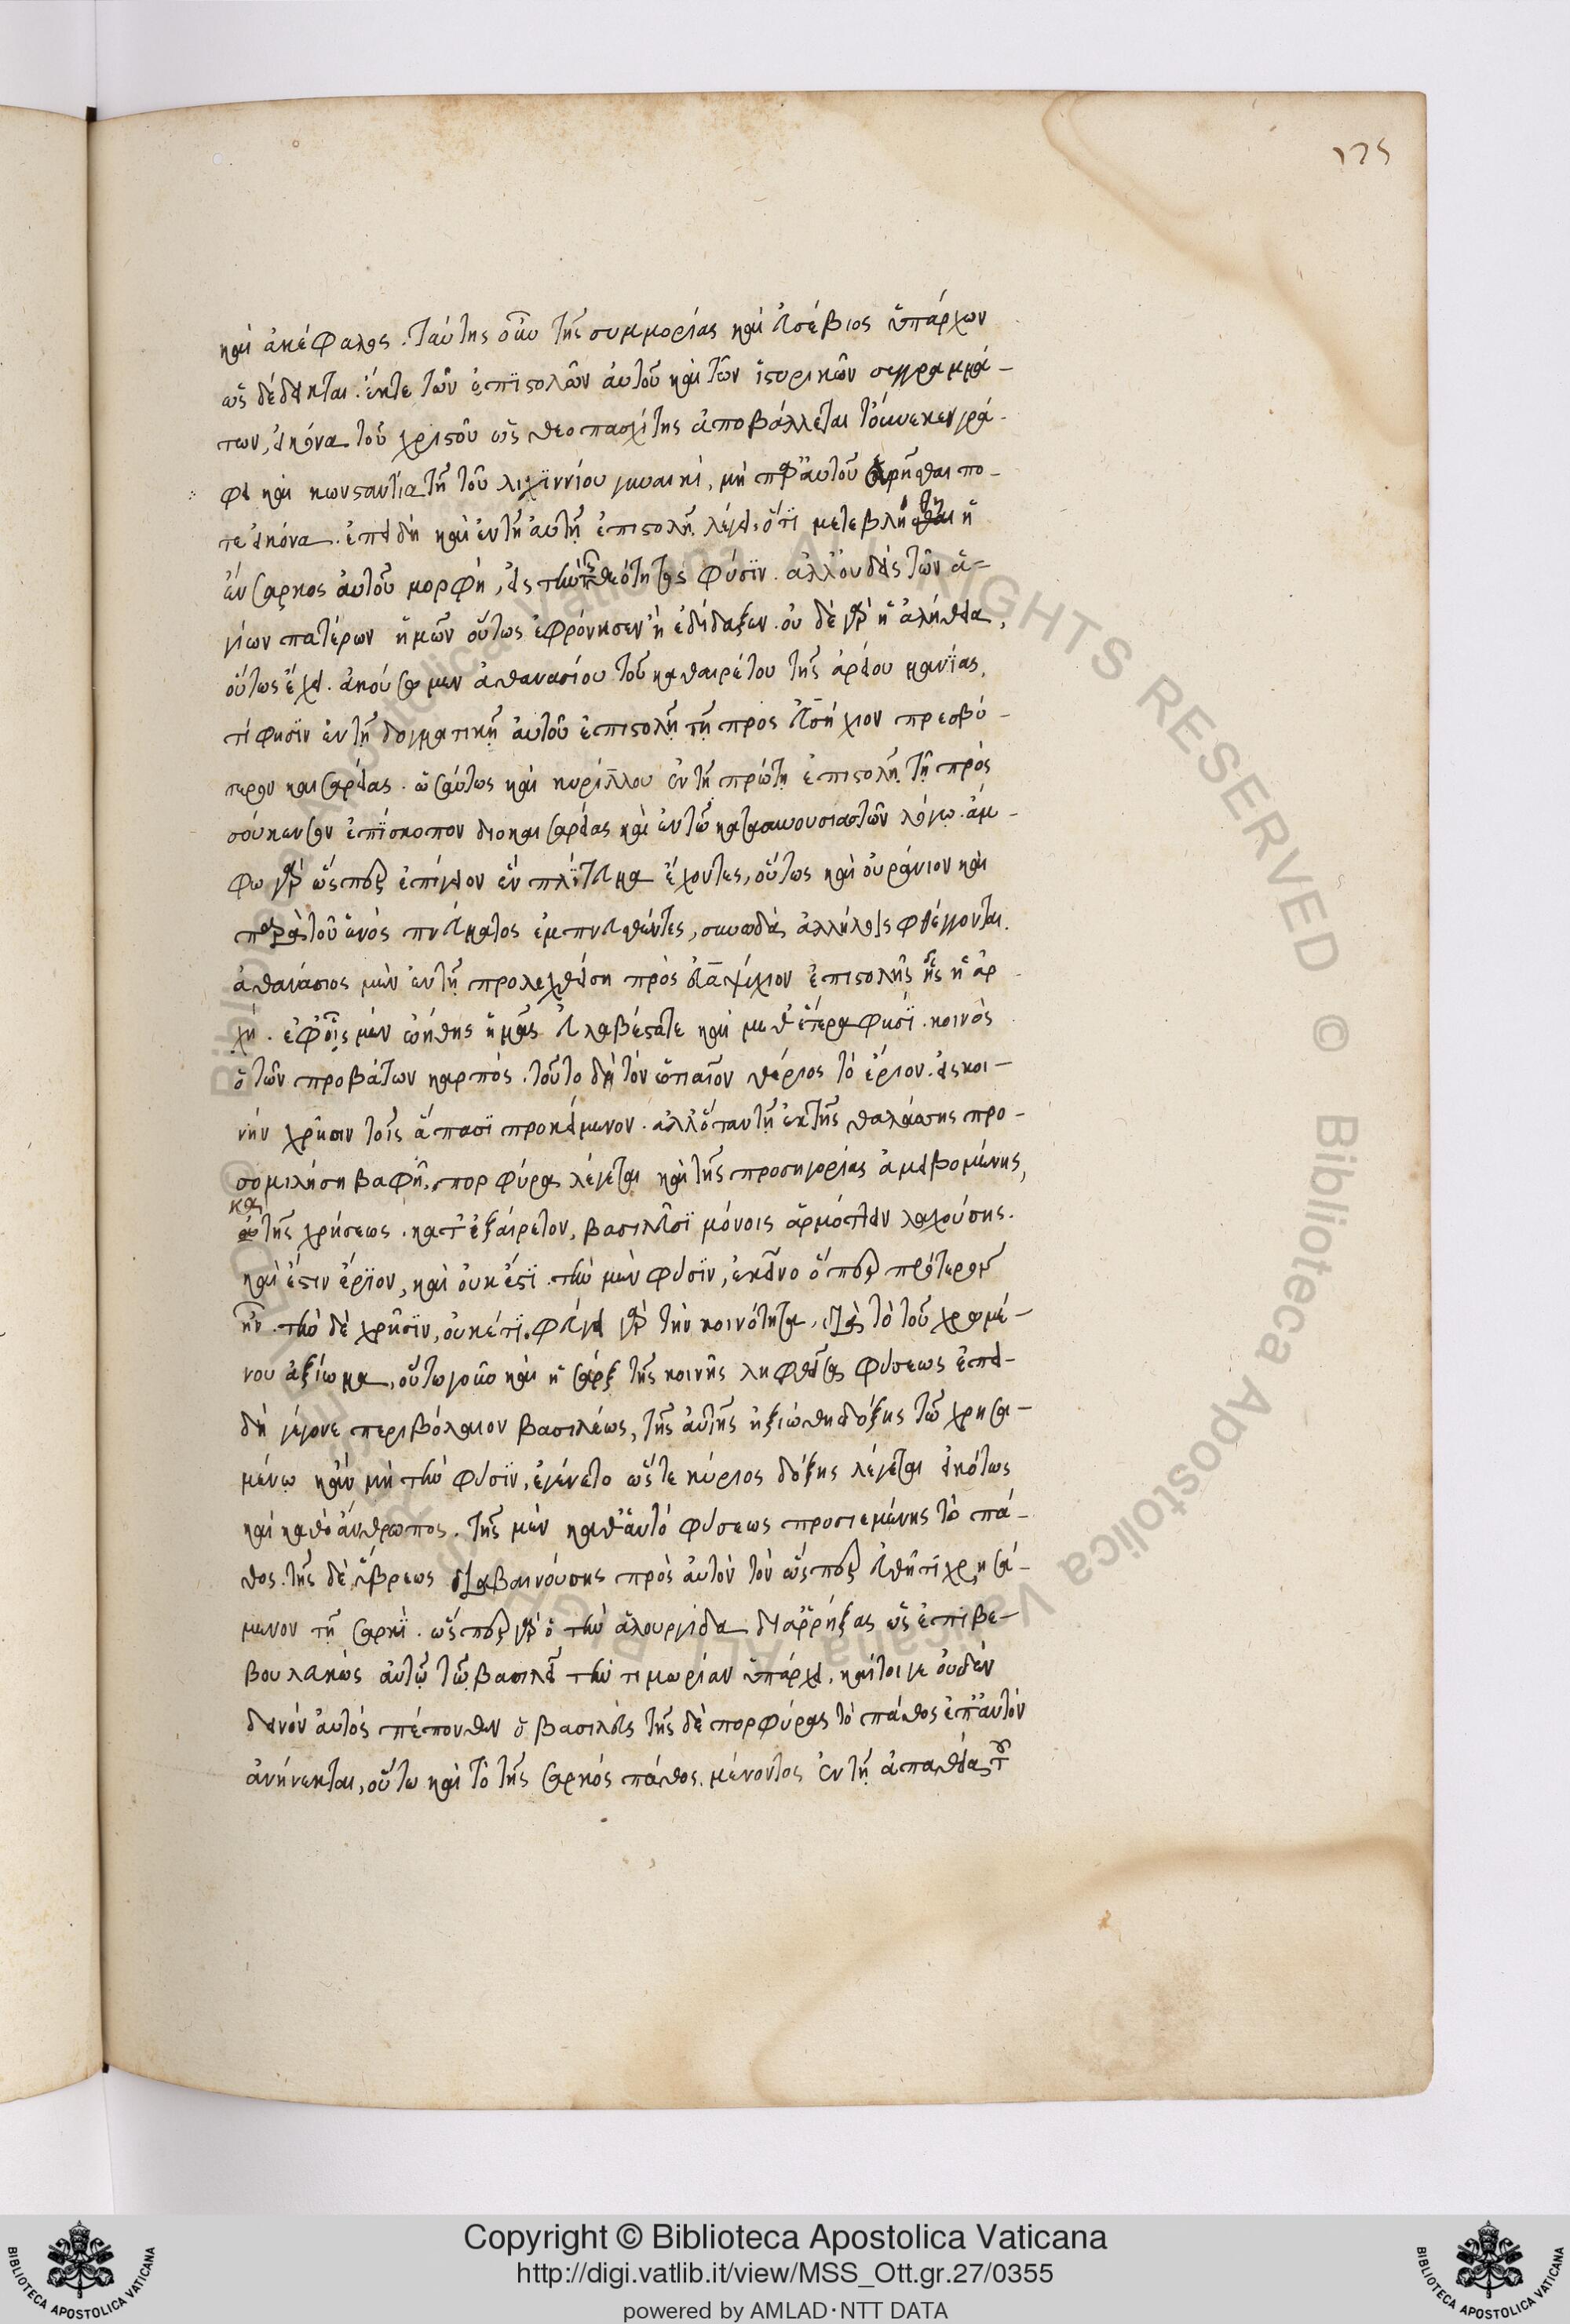 175
καὶ ἀκέφαλος. ταύτης οὖν τῆς συμμορίας καὶ εὐσέβιος ὑπάρχων
ὡς δέδεικται. ἔκτε τῶν ἐπϊστολῶν αὐτοῦ καὶ τῶν ἱστορικῶν συγγραμμά-
των, εἰκόνα τοῦ χριστοῦ ὡς θεοπασχίτης ἀποβάλλεται τούνεκεν γρά-
φει καὶ κωνσταντία τῆ τοῦ λικϊννίου γυναικὶ, μὴ παρ' αὐτοῦ εὑρῆσθαι πο-
τε εἰκόνα. ἐπειδὴ καὶ ἐν τῆ αὐτῆ ἐπιστολῆ λέγει, ὅτϊ μετεβλήθη ἡ
ἔνσαρκος αὐτοῦ μορφὴ, εἰς τὴν τῆς θεότητος φύσϊν. ἀλλ' οὐδεὶς τῶν ἁ-
γίων πατέρων ἡμῶν οὕτως ἐφρόνησεν ἢ ἐδίδαξεν. οὐ δὲ γὰρ ἡ ἀλήθεια,
οὕτως ἔχει. ἀκούσωμεν ἀθανασίου τοῦ καθαιρέτου τῆς ἀρείου μανΐας,
τί φησϊν ἐν τῆ δογματικῆ αὐτοῦ ἐπιστολῆ τῆ προς εὐψύχιον πρεσβύ-
τερον καισαρείας. ὡσαύτως καὶ κυρίλλου ἐν τῆ πρώτη ἐπιστολῆ τῆ πρὸς
σούκενσον ἐπϊσκοπον διοκαισαρείας καὶ ἐν τῶ κατασυνουσιαστῶν λόγω. ἄμ-
φω γὰρ ὥσπερ ἐπίγειον ἓν πολϊτευμα ἔχοντες, οὕτως καὶ οὐράνιον καὶ
παρὰ τοῦ ἑνός πνεύματος ἐμπνευσθέντες, συνωδὰ ἀλλήλοις φθέγγονται.
ἀθανάσιος μὲν ἐν τῆ προλεχθείση πρὸς εὐψύχιον ἐπιστολῆς ἧς ἡ ἀρ-
χὴ. ἐφ' οἷς μὲν ὠήθης ἡμᾶς εὐλαβέστατε καὶ μεθ' ἕτερα φησΐ. κοινὸς
ὁ τῶν προβάτων καρπὸς. τοῦτο δὴ τὸν ὥπαῖον θέριος τὸ ἔριον. εἰς κοι-
νὴν χρῆσιν τοῖς ἅπασϊ προκείμενον. ἀλλ' ὅταν τῆ ἐκ τῆς θαλάσσης προ-
σομιλήση βαφῆ, πορφύρα λέγεται καὶ τῆς προσηγορίας ἀμειβομένης,
καὶ τῆς χρήσεως. κατ' ἐξαίρετον, βασιλεῦσϊ μόνοις ἁρμόττειν λαχούσης.
καὶ ἔστιν ἔρϊον, καὶ οὐκ ἔστϊ. τὴν μὲν φύσϊν, ἐκεῖνο ὅπερ πρότερον
ἦν. τὴν δὲ χρῆσϊν, οὐκέτϊ. φεύγει γὰρ τὴν κοινότητα, διὰ τὸ τοῦ χρωμέ-
νου ἀξίωμα, οὕτω γοῦν καὶ ἡ σάρξ τῆς κοινῆς ληφθεῖσα φύσεως ἐπει-
δὴ γέγονε περιβόλαιον βασιλέως, τῆς αὐτῆς ἠξιώθη δόξης τῶ χρησα-
μένω κἂν μὴ τὴν φύσϊν, ἐγένετο ὥστε κύριος δόξης λέγεται εἰκότως
καὶ καθὸ ἄνθρωπος. τῆς μὲν καθ' αὑτὸ φύσεως προσιεμένης τὸ πά-
θος. τῆς δὲ ὕβρεως διαβαινούσης πρὸς αὐτὸν τὸν ὥσπερ ἐσθῆτϊ χρησά-
μενον τῆ σαρκΐ. ὥσπερ γὰρ ὁ τὴν ἁλουργίδα διαῤῥήξας ὡς ἐπιβε-
βουλευκὼς αὐτῶ τῶ βασιλεῖ τὴν τιμωρίαν ὑπάρχει, καίτοι γε οὐδὲν
δεινὸν αὐτὸς πέπονθεν ὁ βασιλεύς τῆς δὲ πορφύρας τὸ πάθος ἐπ' αὐτὸν
ἀνήνεκται, οὕτω καὶ τὸ τῆς σαρκὸς πάθος. μένοντος ἐν τῆ ἀπαθεία τοῦ
Copyright © Biblioteca Apostolica Vaticana
http://digi.vatlib.it/view/MSS_Ott.gr.27/0355
powered by AMLAD·NTT DATA